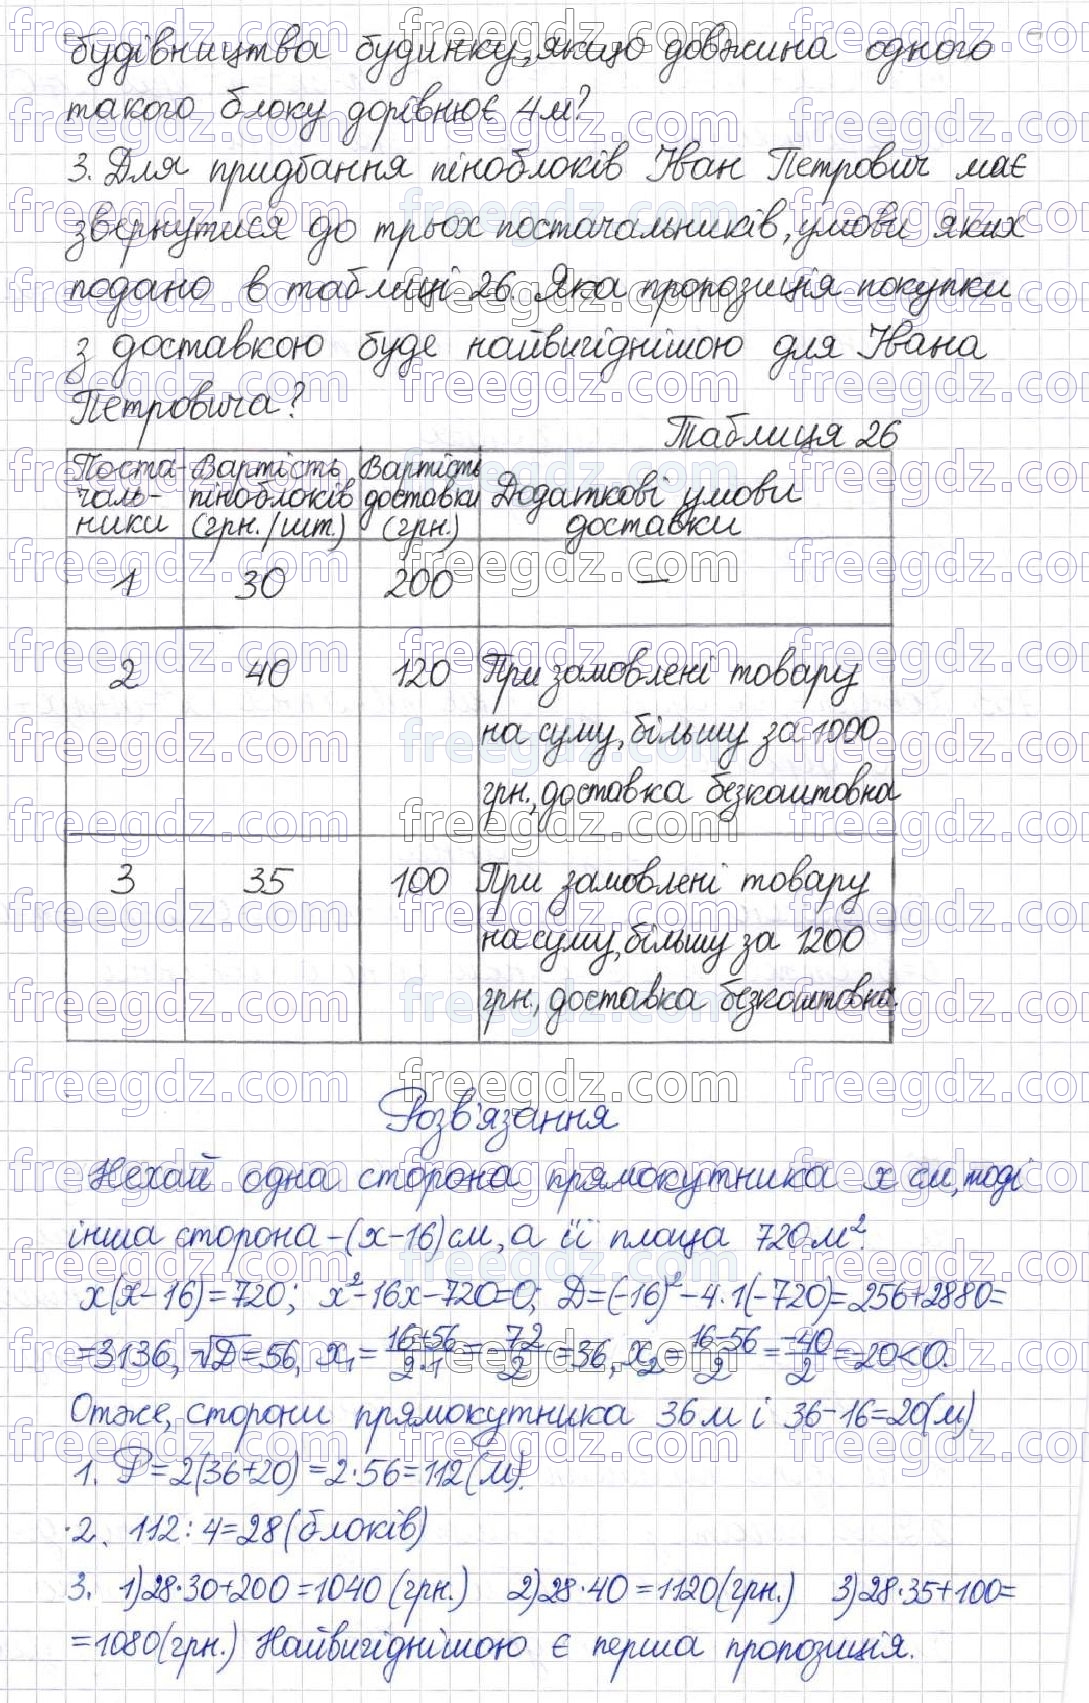 будівництва будинку, якщо довжина одного
такого блоку дорівнює 4м?
3. Для придбання піноблоків Іван Петрович має
звернутися до трьох постачальників, умови яких
подано в таблиці 26. Яка пропозиція покупки
з доставкою буде найвигіднішою для Івана
Петровича?
Таблиця 26
Поста-
чаль-
ники
Вартість
піноблоків
(грн./шт.)
Вартість
доставки
(грн.)
Додаткові умови
доставки
1 30 200 —
2 40 120 При замовлені товару
на суму, більшу за 1000
грн., доставка безкоштовна
3 35 100 При замовлені товару
на суму, більшу за 1200
грн., доставка безкоштовна.
Розв'язання
Нехай одна сторона прямокутника x см, тоді
інша сторона - (x-16) см, а її площа 720м².
x(x-16)=720; x²-16x-720=0; D=(-16)²-4·1(-720)=256+2880=
=3136, √D=56, x₁=(16+56)/(2·1)=72/2=36, x₂=(16-56)/2=-40/2=-20<0.
Отже, сторони прямокутника 36м і 36-16=20(м).
1. P=2(36+20)=2·56=112(м).
2. 112:4=28(блоків)
3. 1)28·30+200=1040(грн.) 2)28·40=1120(грн.) 3)28·35+100=
=1080(грн.) Найвигіднішою є перша пропозиція.
freegdz.com